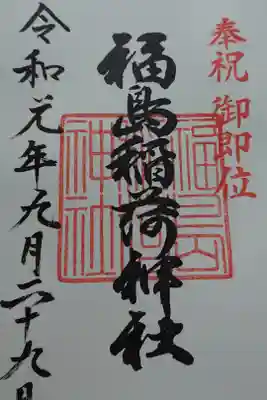 奉祝 御即位
福島稲荷神社
令和元年九月二十九日